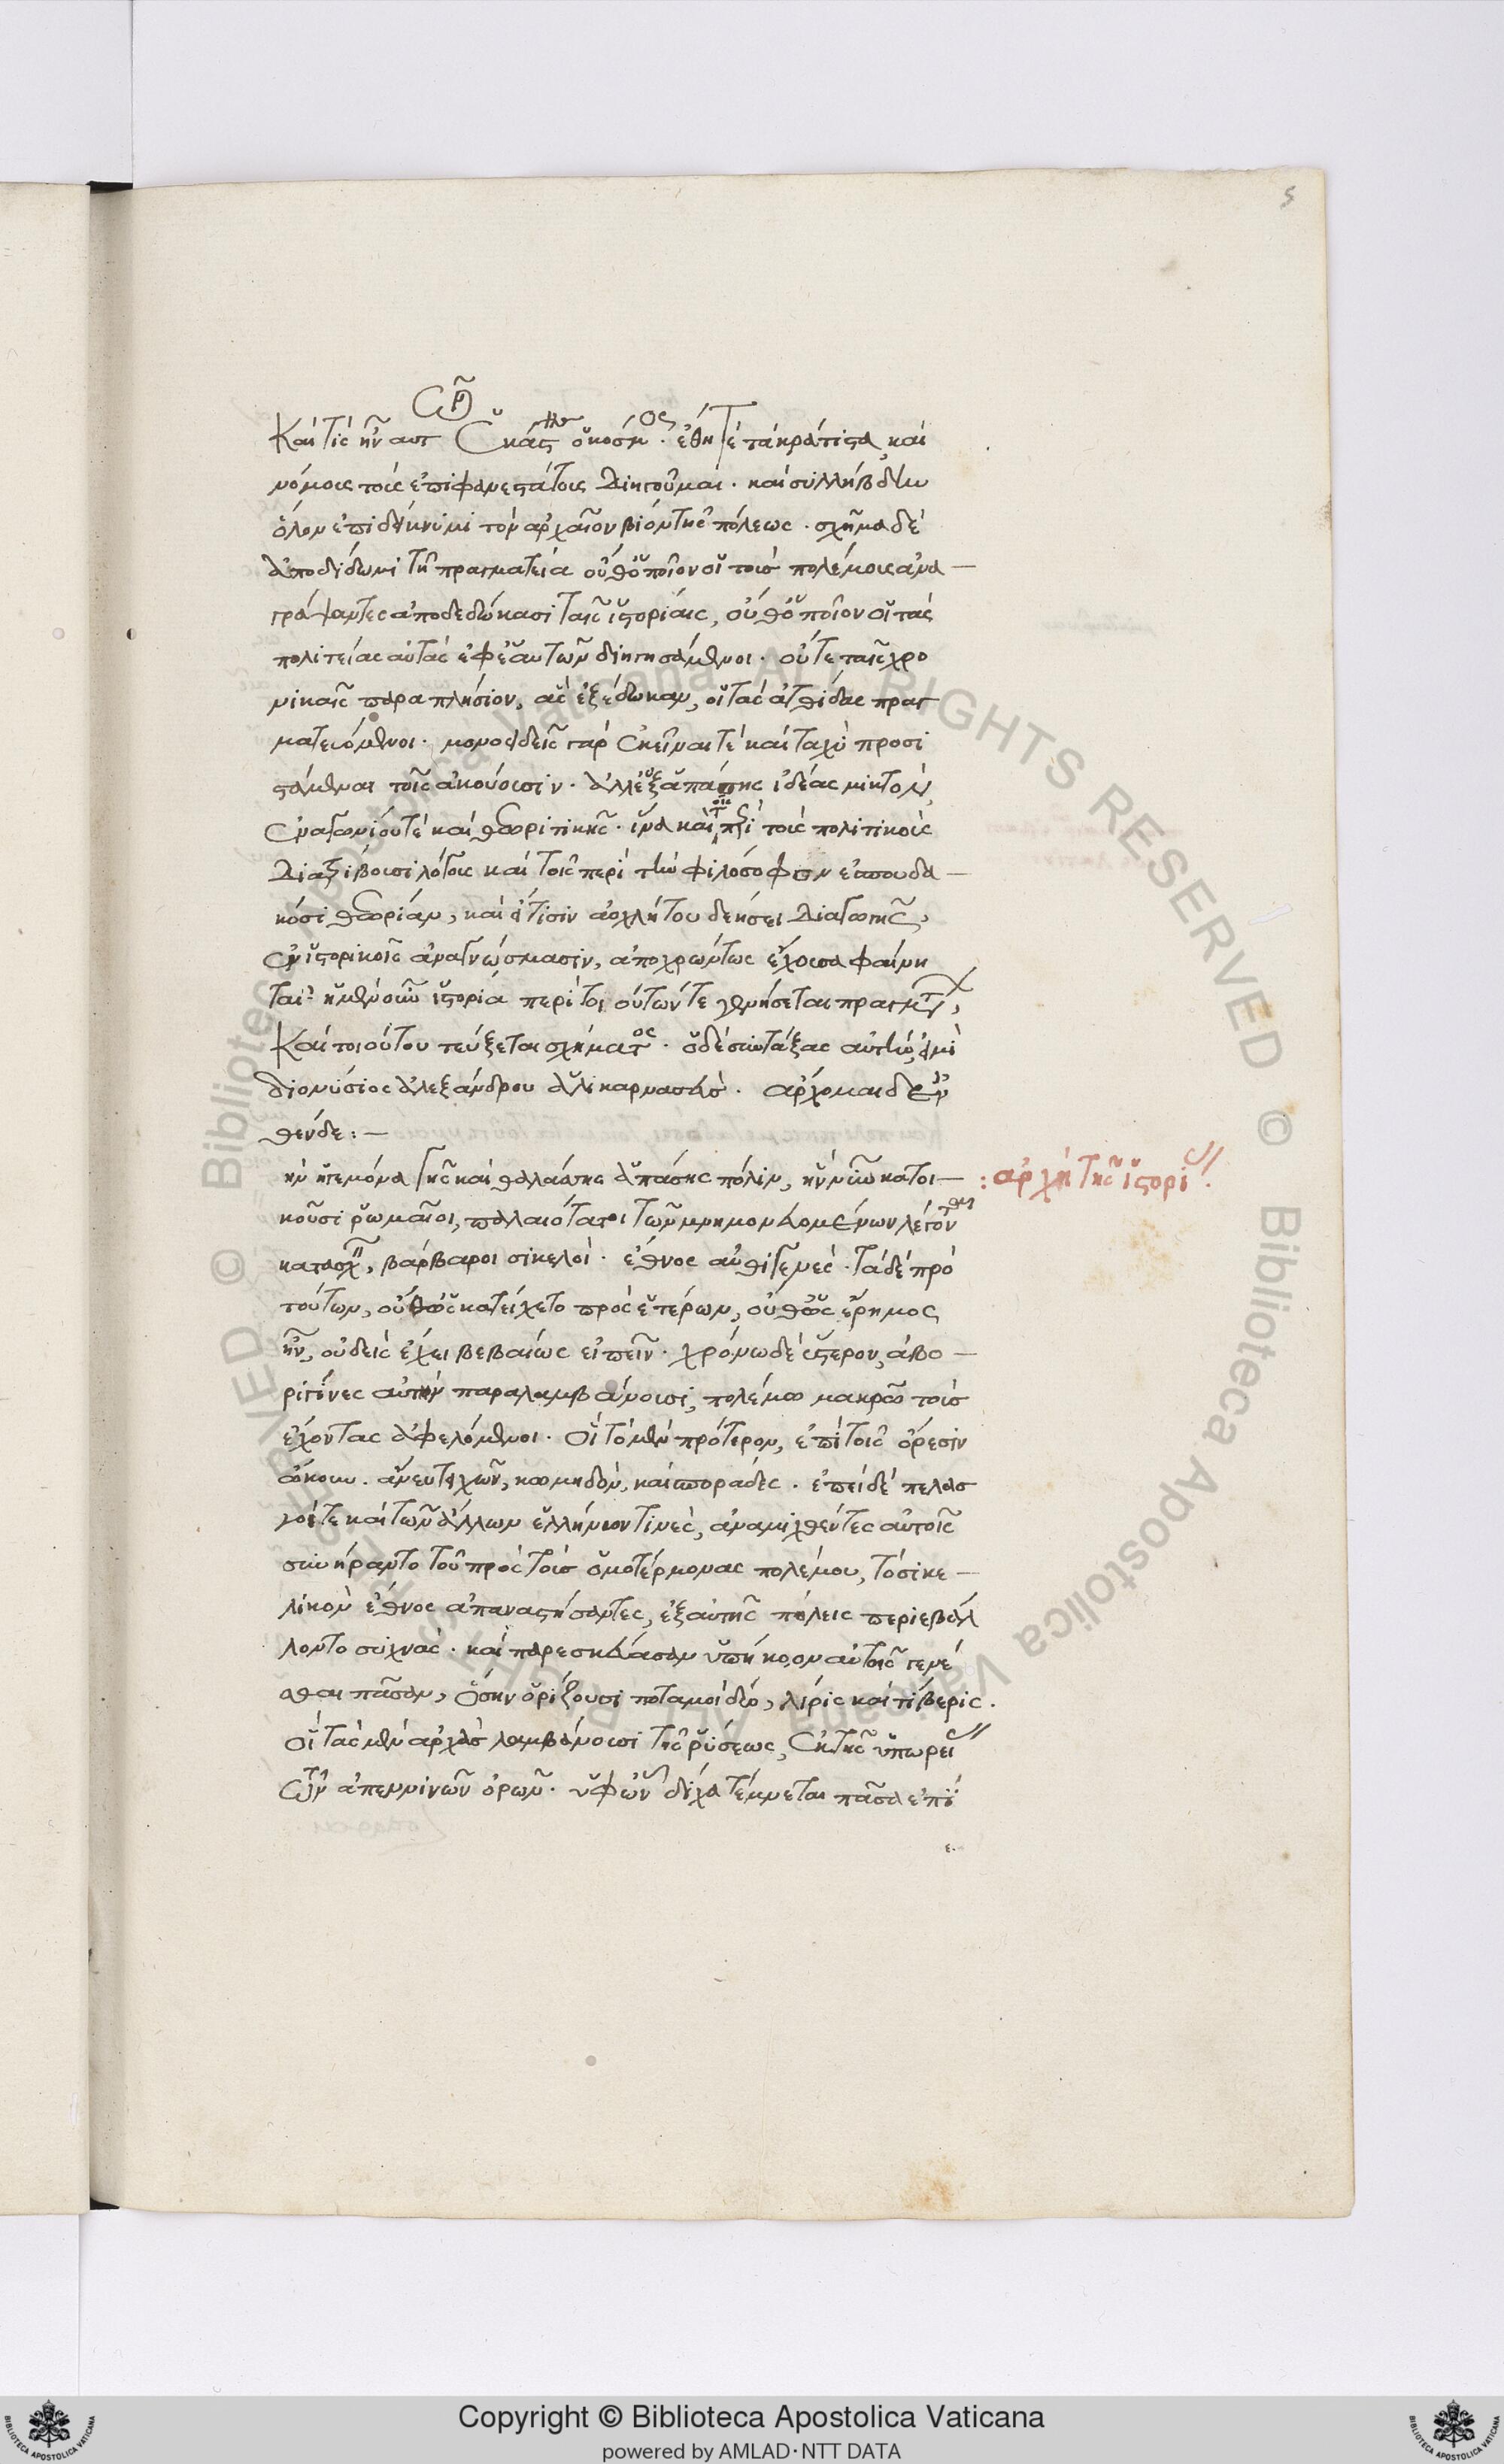 5
Καὶ τίς ἦν αὐτῶν ἑκάστης ὁ κόσμος. ἔθη τὲ τὰ κράτιστα, καὶ
νόμους τοὺς ἐπιφανεστάτους διηγοῦμαι. καὶ συλλήβδην
ὅλον ἐπιδείκνυμι τὸν ἀρχαῖον βίον τῆς πόλεως. σχῆμα δὲ
ἀποδίδωμι τῆ πραγματεία οὔθ' ὁποῖον οἱ τοὺς πολέμους ἀνα-
γράψαντες ἀποδεδώκασι ταῖς ἱστορίαις, οὔθ' ὁποῖον οἱ τὰς
πολιτείας αὐτὰς ἐφ' ἑαυτῶν διηγησάμενοι. οὔτε ταῖς χρο
νικαῖς παραπλήσιον, ἃς ἐξέδωκαν, οἱ τὰς ἀτθίδας πραγ
ματευόμενοι. μονοειδεῖς γὰρ ἐκεῖναι τὲ καὶ ταχὺ προσι
στάμεναι τοῖς ἀκούουσιν. ἀλλ' ἐξ ἁπάσης ἰδέας μικτὸν,
ἐναγωνίου τὲ καὶ θεωρητικῆς. ἵνα καὶ τοῖς περὶ τοὺς πολιτικοὺς
διατρίβουσι λόγους καὶ τοῖς περὶ τὴν φιλόσοφον ἐσπουδα-
κόσι θεωρίαν, καὶ εἴ τισιν ἀοχλήτου δεήσει διαγωγῆς,
ἐν ἱστορικοῖς ἀναγνώσμασιν, ἀποχρώντως ἔχουσα φαίνη
ται. ἡ μὲν οὖν ἱστορία περὶ τοιούτων τε γενήσεται πραγμάτων,
Καὶ τοιούτου τεύξεται σχήματος. ὁ δὲ συντάξας αὐτὴν, εἰμὶ
διονύσιος ἀλεξάνδρου ἁλικαρνασεύς. ἄρχομαι δ' ἐν
θένδε:-
ὴν ἡγεμόνα γῆς καὶ θαλάσσης ἁπάσης πόλιν, ἣν νῦν κατοι-
κοῦσι ῥωμαῖοι, παλαιότατοι τῶν μνημονευομένων λέγονται
κατασχεῖν, βάρβαροι σικελοὶ. ἔθνος αὐθιγενές. τὰ δὲ πρὸ
τούτων, οὔθ' ὡς κατείχετο πρὸς ἑτέρων, οὔθ' ὡς ἔρημος
ἦν, οὐδεὶς ἔχει βεβαίως εἰπεῖν. χρόνω δὲ ὕστερον, ἀβο-
ριγῖνες αὐτὴν παραλαμβάνουσι, πολέμω μακρῶ τοὺς
ἔχοντας ἀφελόμενοι. οἳ τὸ μὲν πρότερον, ἐπὶ τοῖς ὄρεσιν
ὤκουν. ἄνευ τειχῶν, κωμηδὸν, καὶ σποράδες. ἐπεὶ δὲ πελασ
γοί τε καὶ τῶν ἄλλων ἑλλήνων τινὲς, ἀναμιχθέντες αὐτοῖς
συνήραντο τοῦ πρὸς τοὺς ὁμοτέρμονας πολέμου, τὸ σικε-
λικὸν ἔθνος ἀπαναστήσαντες, ἐξ αὐτῆς πόλεις περιεβάλ
λοντο συχνὰς. καὶ παρεσκεύασαν ὑπήκοον αὐτοῖς γενέ
σθαι πᾶσαν, ὅσην ὁρίζουσι ποταμοὶ δύο, λίρις καὶ τίβερις.
οἳ τὰς μὲν ἀρχὰς λαμβάνουσι τῆς ῥύσεως, ἐκ τῆς ὑπωρείας
τῶν ἀπεννίνων ὀρῶν. ὑφ' ὧν δίχα τέμνεται πᾶσα ἐπὶ
: ἀρχὴ τῆς ἱστορίας.
ε.
Copyright © Biblioteca Apostolica Vaticana
powered by AMLAD·NTT DATA